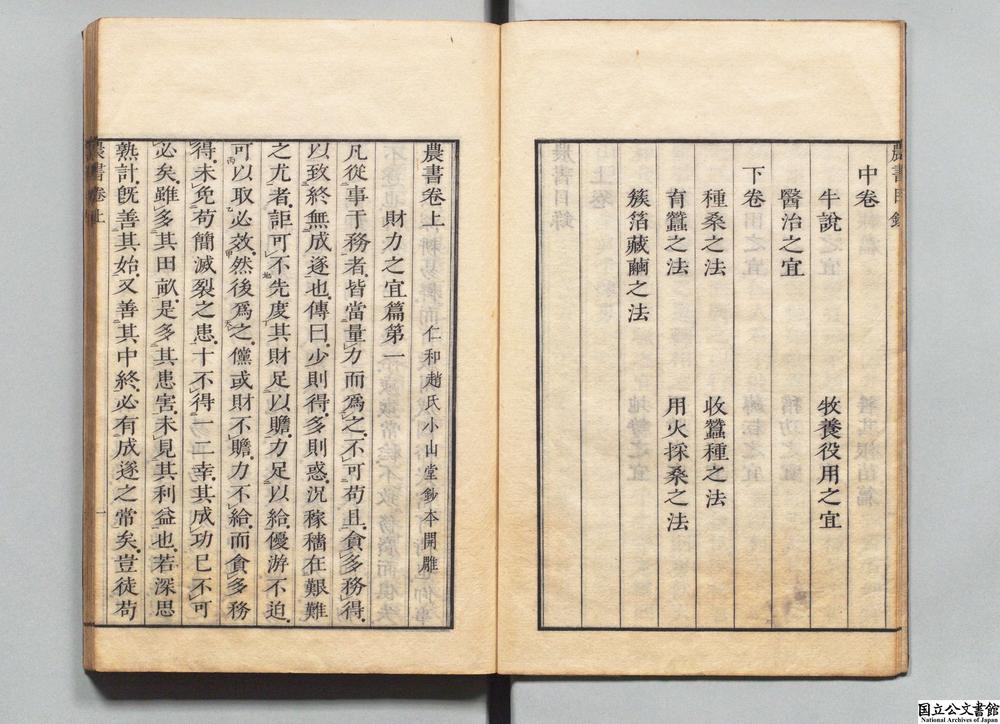 農書目錄
中卷
牛說 牧養役用之宜
醫治之宜
下卷
種桑之法 收蠶種之法
育蠶之法 用火採桑之法
簇箔藏繭之法
農書卷上 仁和趙氏小山堂鈔本開雕
財力之宜篇第一
凡從事于務者皆當量力而爲之不可苟且貪多務得
以致終無成遂也傳曰少則得多則惑況稼穡在艱難
之尤者詎可不先度其財足以贍力足以給優游不迫
可以取必效然後爲之儻或財不贍力不給而貪多務
得未免苟簡滅裂之患十不得一二幸其成功已不可
必矣雖多其田畝是多其患害未見其利益也若深思
熟計旣善其始又善其中終必有成遂之常矣豈徒苟
農書卷上 一
国立公文書館
National Archives of Japan